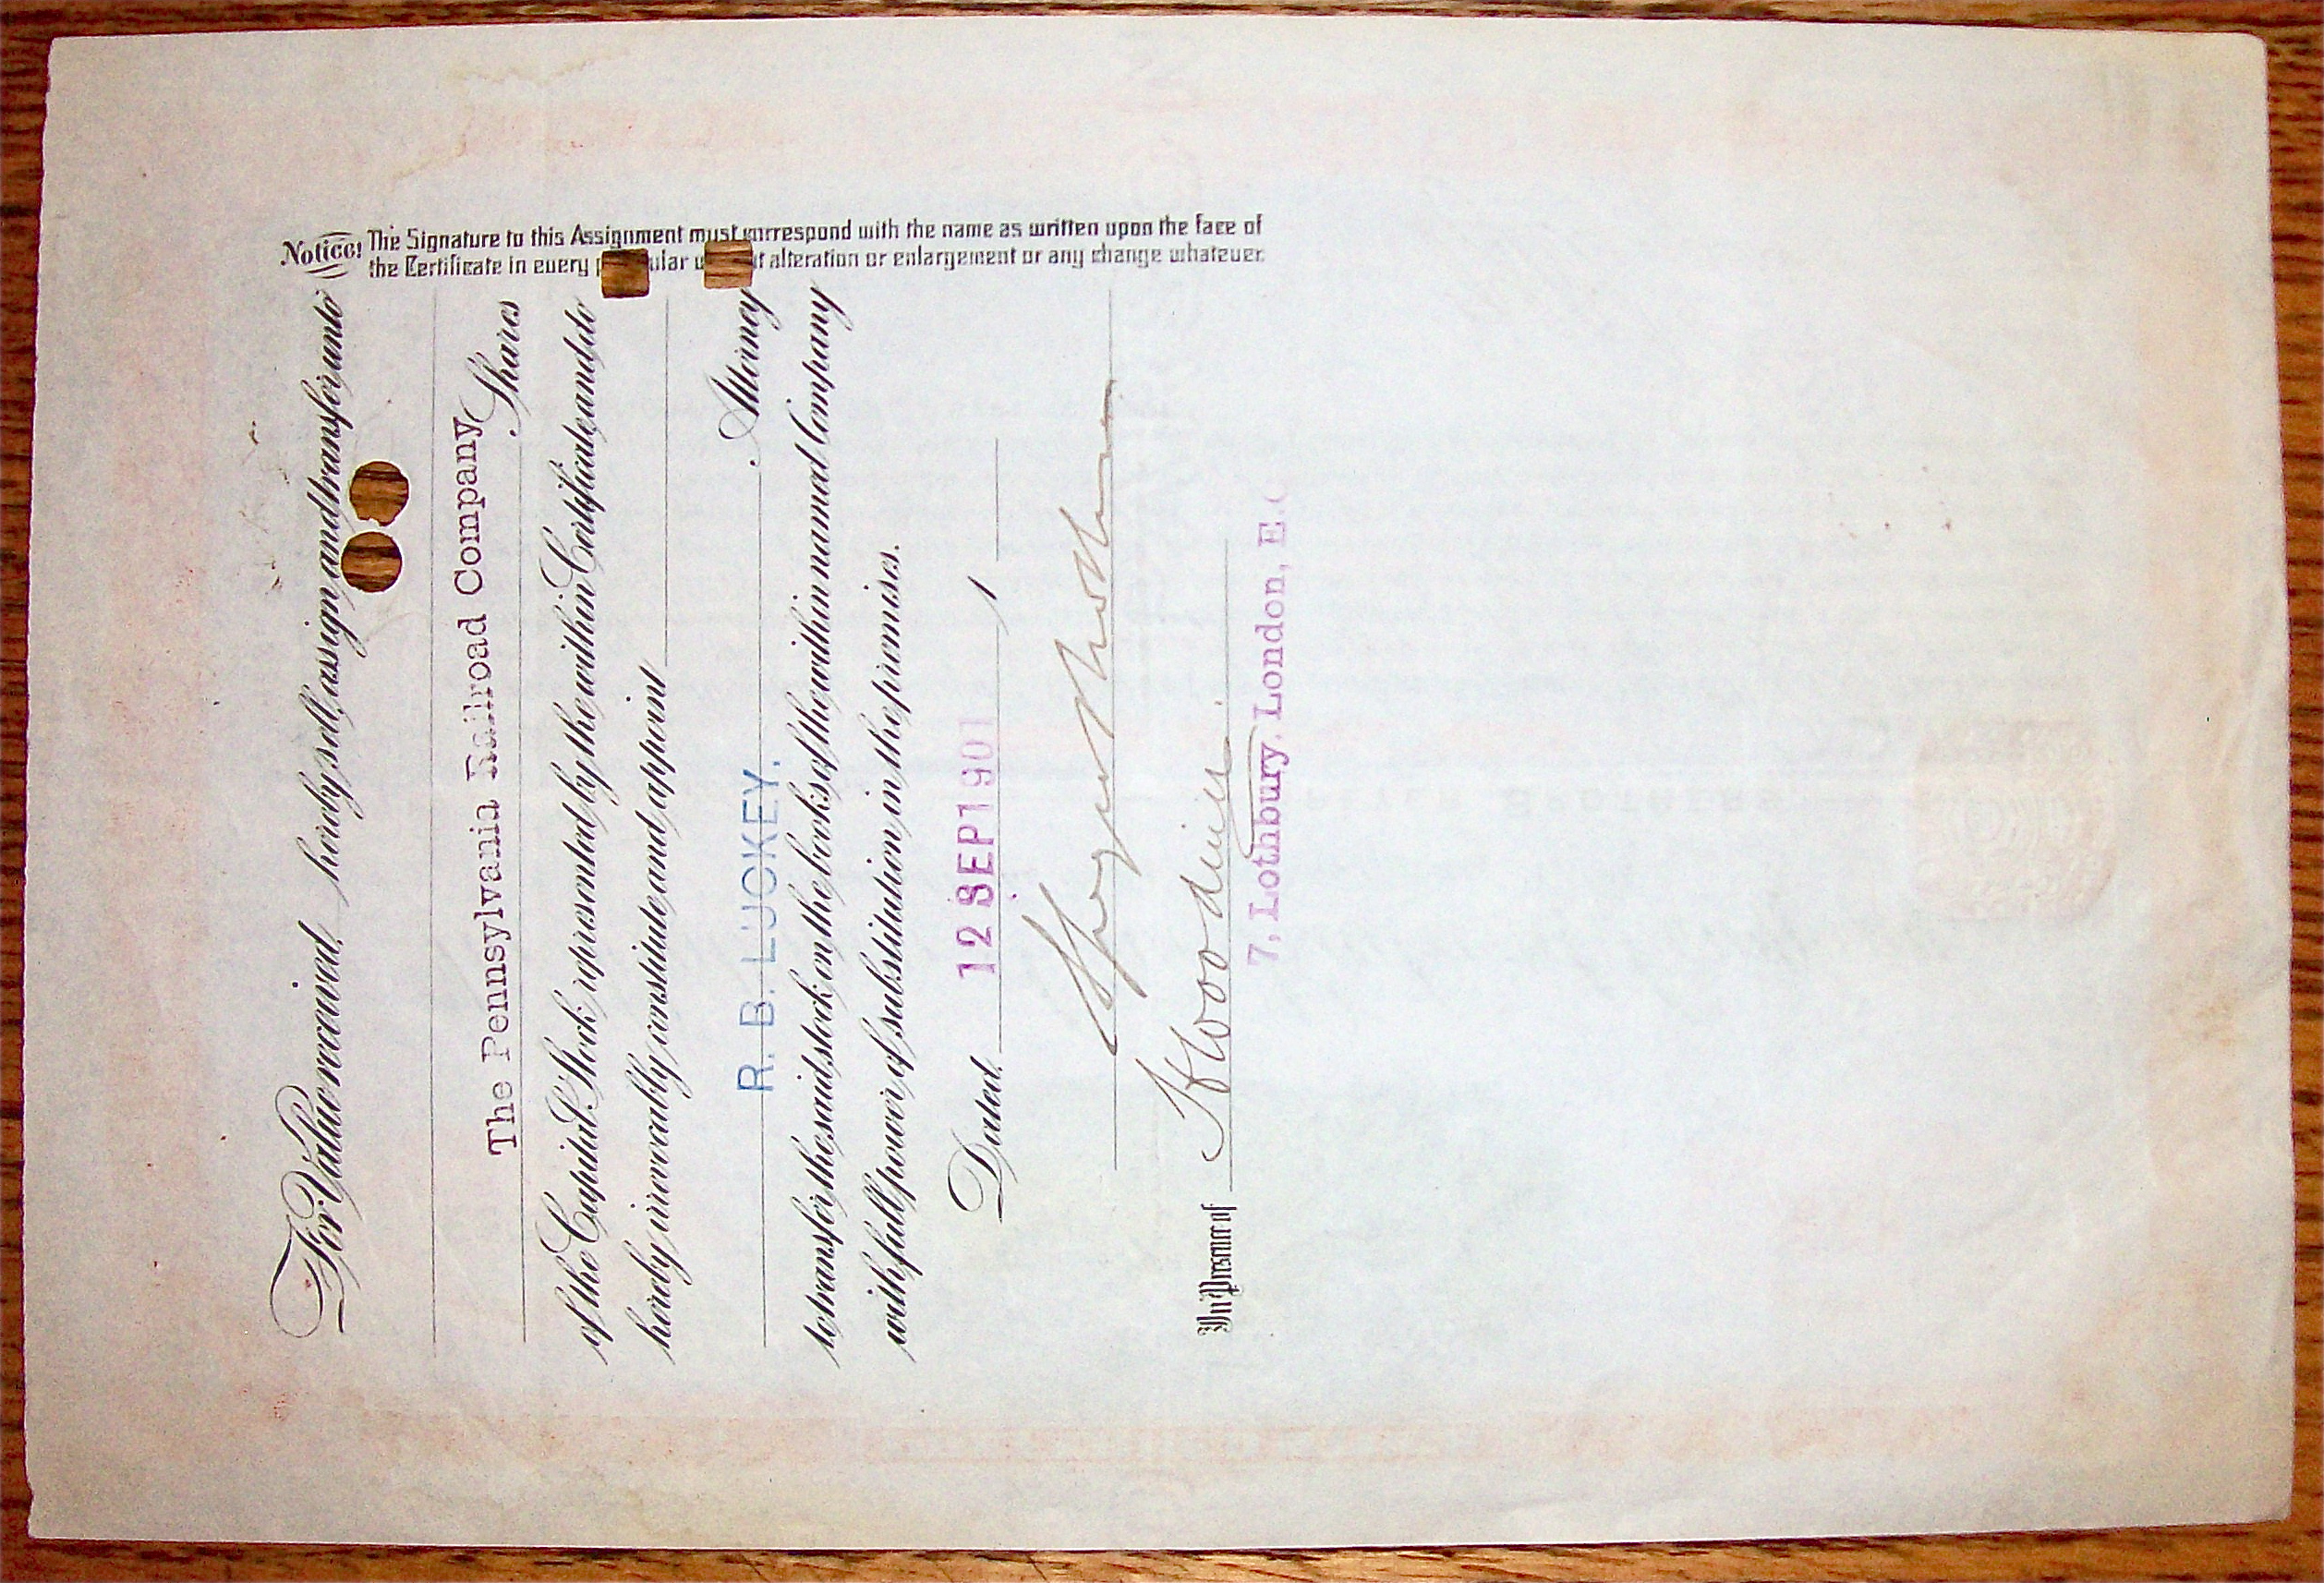 Notice! The Signature to this Assignment must correspond with the name as written upon the face of
the Certificate in every ular alteration or enlargement or any change whatever.
For Value received, hereby sell, assign and transfer unto
The Pennsylvania Railroad Company
Shares
of the Capital Stock represented by the within Certificate and do
hereby irrevocably constitute and appoint
R. B. LUCKEY.
Attorney
to transfer the said stock on the books of the within named Company
with full power of substitution in the premises.
Dated 12 SEP 1901 1
In Presence of
7, Lothbury. London, E.C